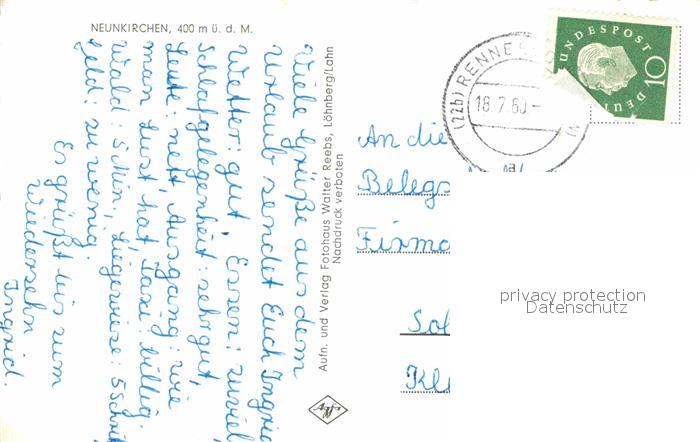 NEUNKIRCHEN, 400 m ü. d. M.
Viele Grüße aus dem
Urlaub sendet Euch Ingrid
Wetter: gut, Essen: zuviel,
Schlafgelegenheit: sehr gut,
Leute: nett, Ausgang: wie
man Lust hat, Taxi: billig,
Wald: 5 Min, Liegewiese: 5 Schri
Geld: zu wenig.
Es grüßt bis zum
Wiedersehn
Ingrid.
Aufn. und Verlag Fotohaus Walter Reebs, Löhnberg/Lahn
Nachdruck verboten
afw
(22b) RENNE
18.7.60.-
a
DEUT BUNDESPOST
10
An die
Belegs
Firma
Sol
Kl
privacy protection
Datenschutz